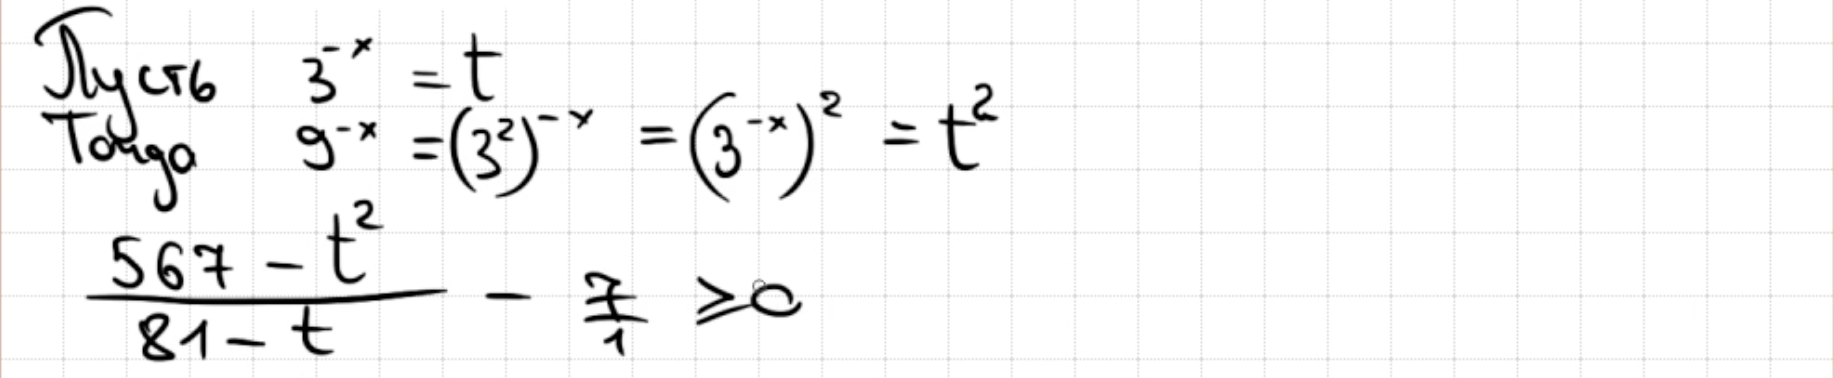 Пусть 3^{-x} = t
Тогда 9^{-x} = (3^2)^{-x} = (3^{-x})^2 = t^2
\frac{567 - t^2}{81 - t} - \frac{7}{1} ≥ 0